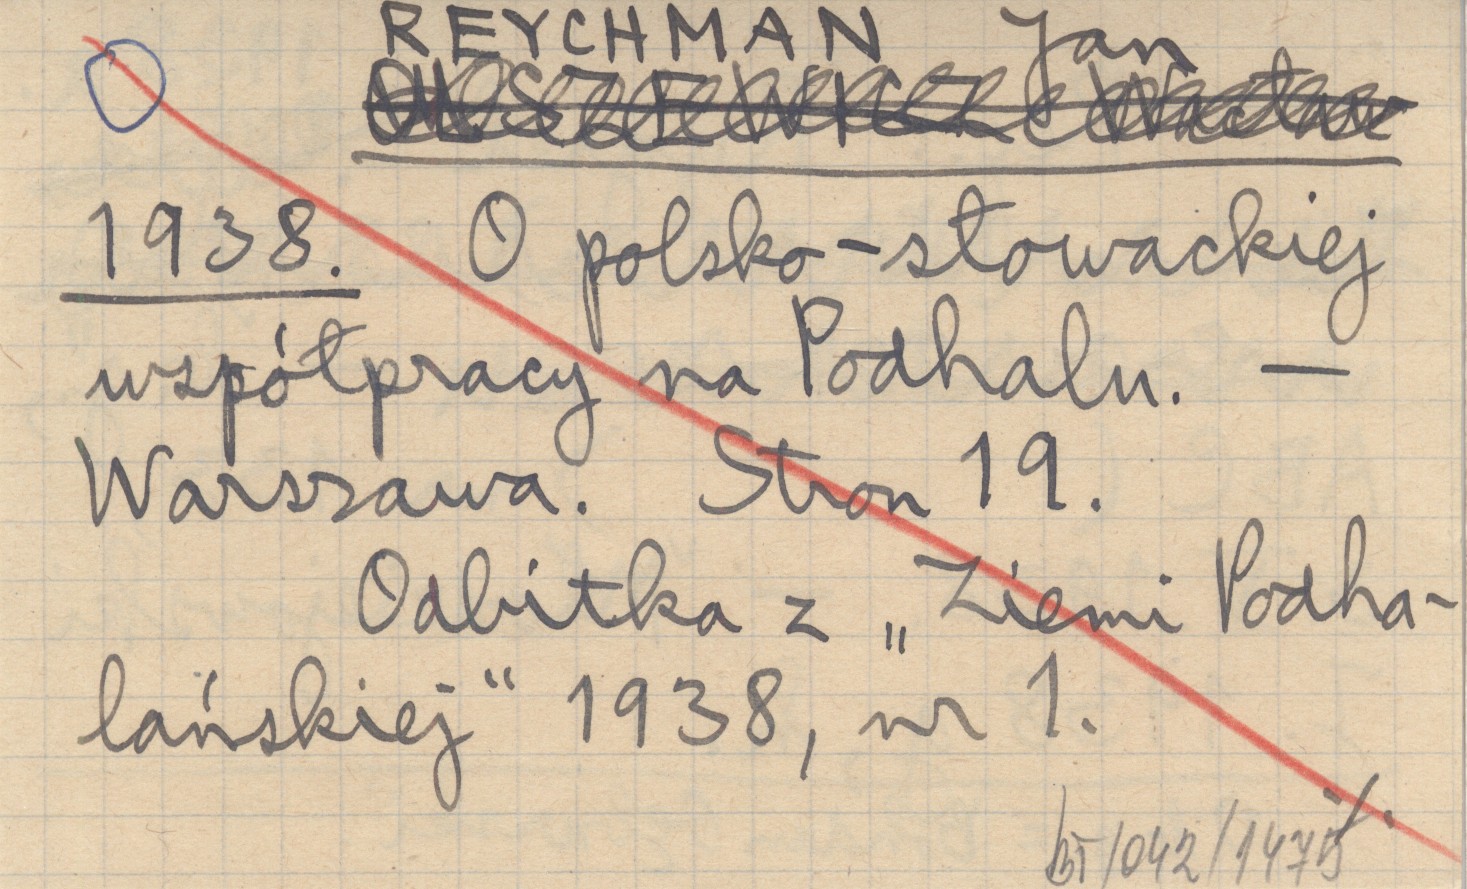 REYCHMAN Jan
1938. O polsko-słowackiej
współpracy na Podhalu. —
Warszawa. Stron 19.
Odbitka z „Ziemi Podha-
lańskiej“ 1938, nr 1.
BT/042/1475